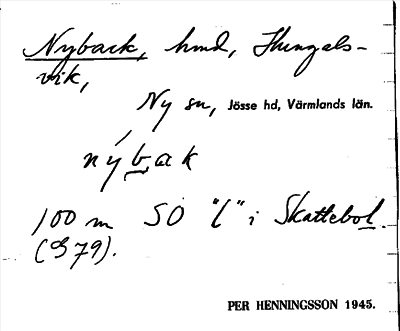 Nyback, hmd, Hungals-
vik,
Ny sn, Jösse hd, Värmlands län.
nýbak
100 m SO "l" i Skattebol.
(S79).
PER HENNINGSSON 1945.